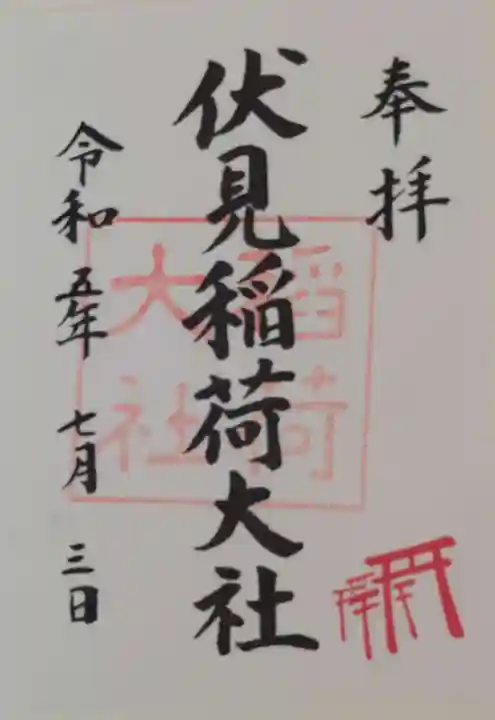 奉拝
伏見稲荷大社
稲荷
大社
令和五年七月三日